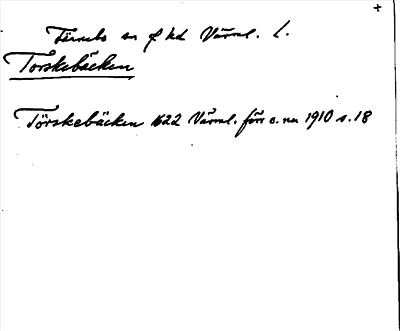 +
Färnebo sn o hd Värml. l.
Torskebäcken
Törskebäcken 1622 Värml. förr o. nu 1910 s. 18